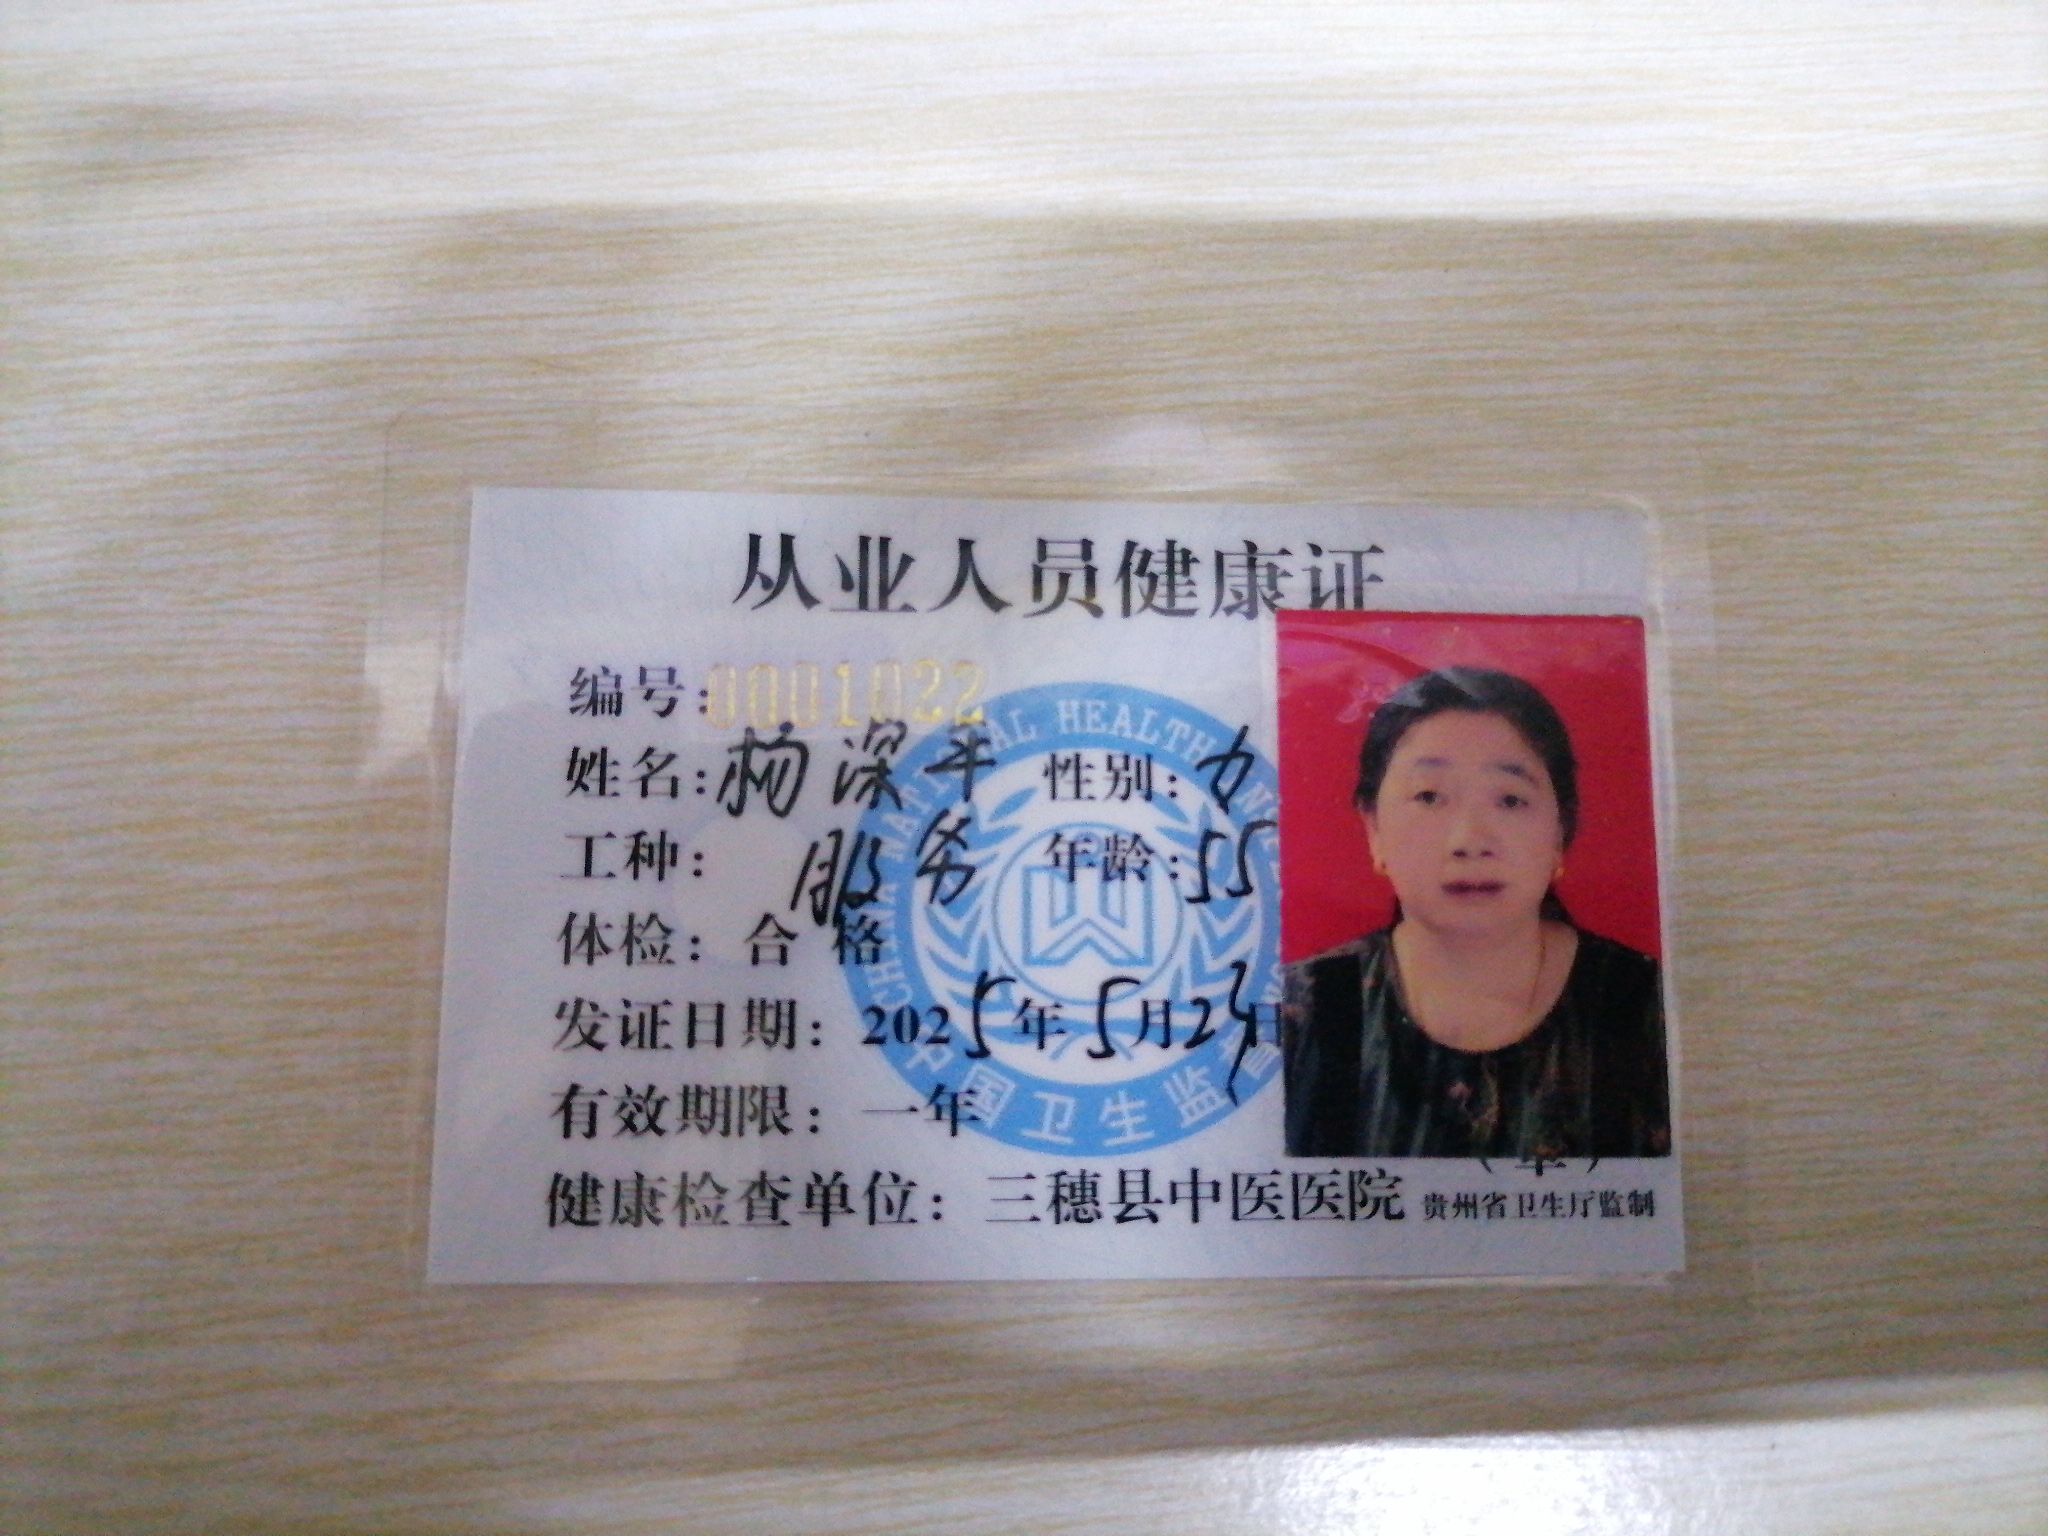 从业人员健康证
编号:0001022
姓名:杨深平 性别:女
工种: 服务 年龄:55
体检: 合格
发证日期: 2025年5月23日
有效期限: 一年
健康检查单位: 三穗县中医医院 贵州省卫生厅监制
CHINA NATIONAL HEALTH IN
中国卫生监督